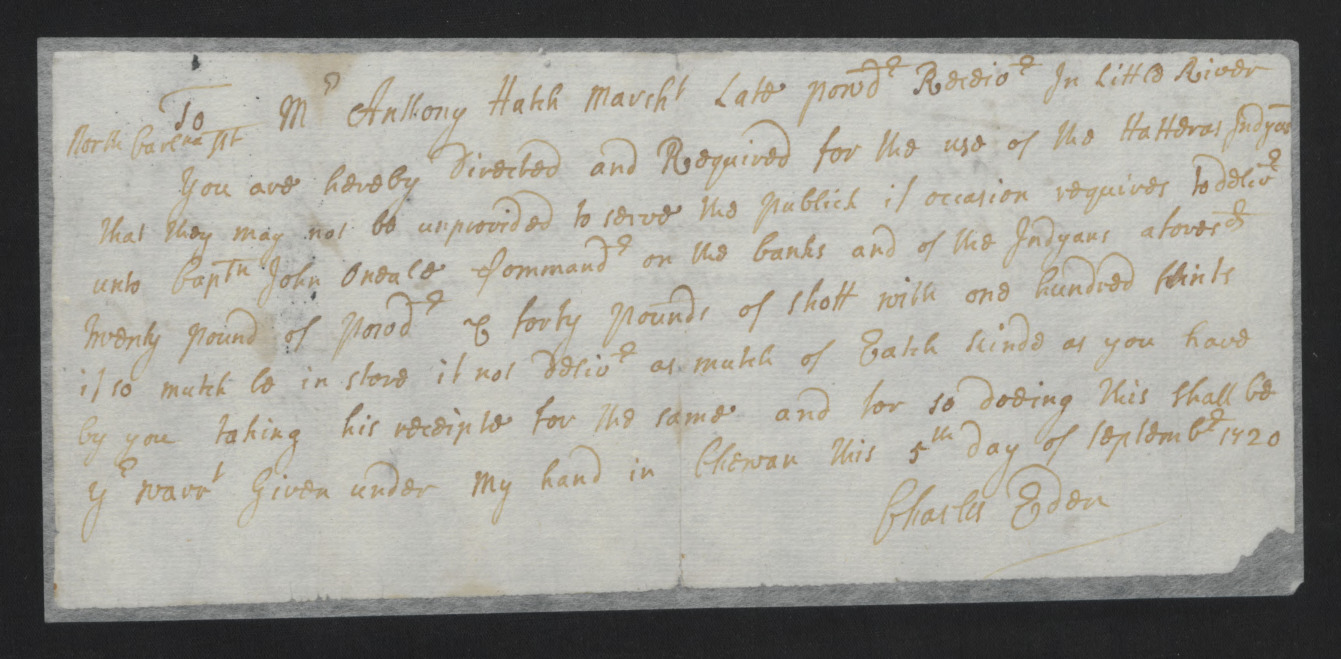 To Mr Anthony Hatch Marcht Late powdr Receivr In Little River
North Carlna SSt
You are hereby Directed and Required for the use of the Hatteras Indyans
that they may not be unprovided to serve the publick if occasion requires to delivr
unto Captn John Oneale Commandr on the banks and of the Indyans aforesd
twenty pound of powdr & forty pounds of shott with one hundred flints
if so mutch be in store if not delivr as mutch of Eatch kinde as you have
by you taking his receipte for the same and for so doeing this shall be
yr warrt Given under my hand in Chowan this 5th day of Septembr 1720
Charles Eden